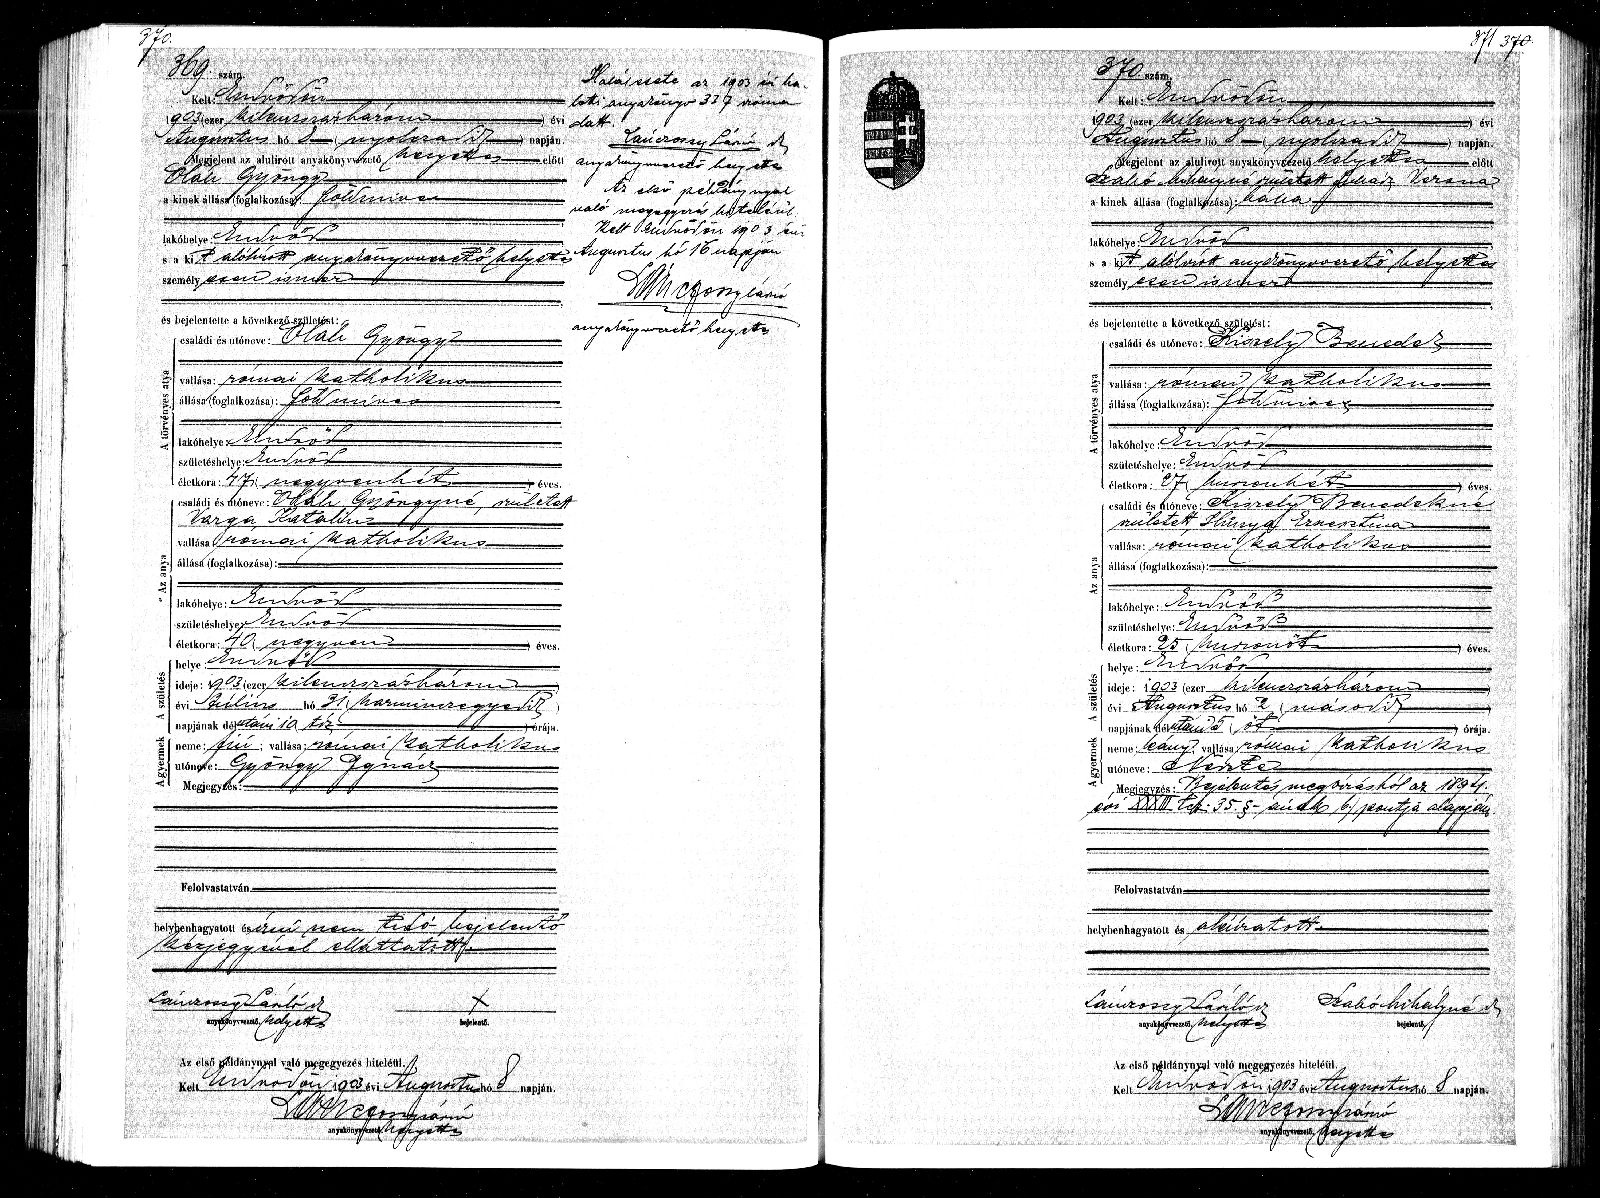 370.
369. szám.
Kelt: Endrődön
1903 (ezer kilenczszázhárom) évi
Augusztus hó 8 (nyolczadik) napján.
Megjelent az alulirott anyakönyvvezető helyettes előtt
Oláh György
a kinek állása (foglalkozása): földmives
lakóhelye: Endrőd
s a kit alólirott anyakönyvvezető helyettes
személyesen ismer
és bejelentette a következő születést:
A törvényes atya
családi és utóneve: Oláh György
vallása: római katholikus
állása (foglalkozása): földmives
lakóhelye: Endrőd
születéshelye: Endrőd
életkora: 47 (negyvenhét) éves.
Az anya
családi és utóneve: Oláh Györgyné, született
Varga Katalin
vallása: római katholikus
állása (foglalkozása):
lakóhelye: Endrőd
születéshelye: Endrőd
életkora: 40 (negyven) éves.
A születés
helye Endrőd
ideje: 1903 (ezer kilenczszázhárom)
évi Július hó 31 (harminczegyedik)
napjának délutáni 10 tiz órája.
A gyermek
neme: fiú; vallása: római katholikus
utóneve: György Ignácz
Megjegyzés:
Felolvastatván
helybenhagyatott és irni nem tudó bejelentő
kézjegyével elláttatott.
Lánczossy László
anyakönyvvezető, helyettes
x
bejelentő.
Az első példánynyal való megegyezés hiteléül.
Kelt Endrődön 1903 évi Augusztus hó 8 napján.
Lánczossy László
anyakönyvvezető helyettes
Halálesete az 1903 évi ha-
lotti anyakönyv 337 szám
alatt.
Lánczossy László
anyakönyvvezető helyettes
Az első példánynyal
való megegyezés hiteléül.
Kelt Endrődön 1903 évi
Augusztus hó 16 napján
Lánczossy László
anyakönyvvezető helyettes
371 370.
370. szám.
Kelt: Endrődön
1903 (ezer kilenczszázhárom) évi
Augusztus hó 8 (nyolczadik) napján.
Megjelent az alulirott anyakönyvvezető helyettes előtt
Szabó Mihályné született Verona
a kinek állása (foglalkozása): bába
lakóhelye: Endrőd
s a kit alólirott anyakönyvvezető helyettes
személyesen ismer
és bejelentette a következő születést:
A törvényes atya
családi és utóneve: Kiszely Benedek
vallása: római katholikus
állása (foglalkozása): földmives
lakóhelye: Endrőd
születéshelye: Endrőd
életkora: 27 (huszonhét) éves.
Az anya
családi és utóneve: Kiszely Benedekné
született Hunya Ernesztina
vallása: római katholikus
állása (foglalkozása):
lakóhelye: Endrőd
születéshelye: Endrőd
életkora: 25 (huszonöt) éves.
A születés
helye: Endrőd
ideje: 1903 (ezer kilenczszázhárom)
évi Augusztus hó 2 (második)
napjának délutáni 5 (öt) órája.
A gyermek
neme: leány; vallása: római katholikus
utóneve:
Megjegyzés: Bejelentés megbizásból az 1894.
évi XXXIII t.cz. 35. §-ának b) pontja alapján
Felolvastatván
helybenhagyatott és aláiratott.
Lánczossy László
anyakönyvvezető, helyettes
Szabó Mihályné
bejelentő.
Az első példánynyal való megegyezés hiteléül.
Kelt Endrődön, 1903 évi Augusztus hó 8 napján.
Lánczossy László
anyakönyvvezető, helyettes